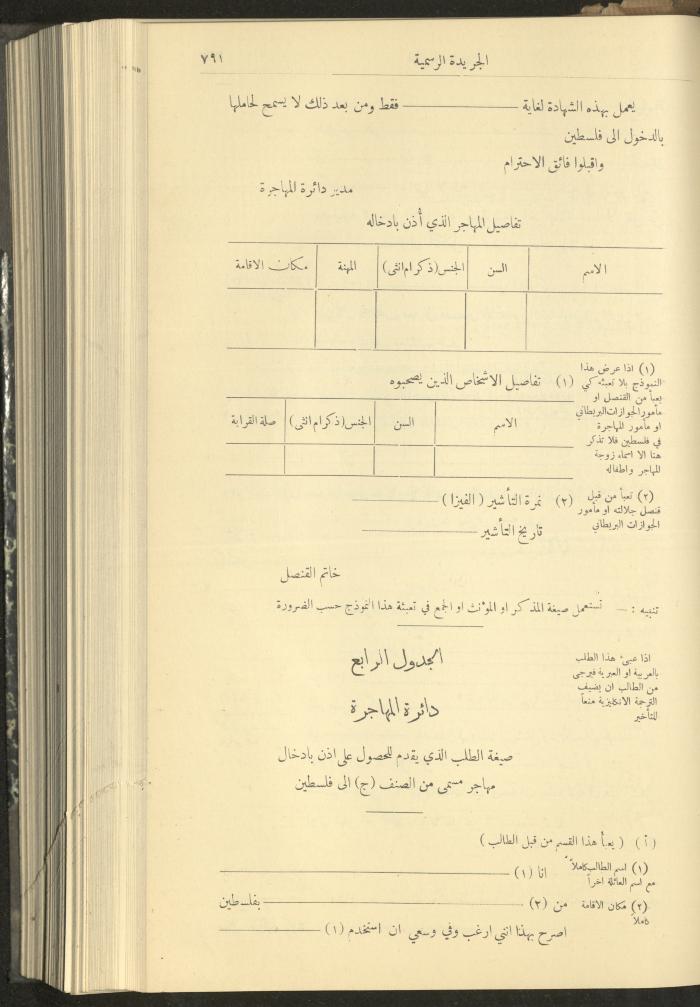 الجريدة الرسمية ٧٩١
يعمل بهذه الشهادة لغاية ———— فقط ومن بعد ذلك لا يسمح لحاملها
بالدخول الى فلسطين
واقبلوا فائق الاحترام
مدير دائرة المهاجرة
تفاصيل المهاجر الذي أذن بادخاله
الاسم السن الجنس (ذكر ام انثى) المهنة مكان الاقامة
(١) تفاصيل الاشخاص الذين يصحبوه
(١) اذا عرض هذا
النموذج بلا تعبئه كي
يعبأ من القنصل او
مأمور الجوازات البريطاني
او مأمور المهاجرة
في فلسطين فلا تذكر
هنا الا اسماء زوجة
المهاجر واطفاله
الاسم السن الجنس (ذكر ام انثى) صلة القرابة
(٢) تعبأ من قبل
قنصل جلالته او مأمور
الجوازات البريطاني
(٢) نمرة التأشير (الفيزا) ————
تاريخ التأشير ————
خاتم القنصل
تنبيه : — تستعمل صيغة المذكر او المؤنث او الجمع في تعبئة هذا النموذج حسب الضرورة
اذا عبئ هذا الطلب
بالعربية او العبرية فيرجى
من الطالب ان يضيف
الترجمة الانكليزية منعاً
للتأخير
الجدول الرابع
دائرة المهاجرة
صيغة الطلب الذي يقدم للحصول على اذن بادخال
مهاجر مسمى من الصنف (ج) الى فلسطين
(أ) (يعبأ هذا القسم من قبل الطالب)
(١) اسم الطالب كاملاً
مع اسم العائلة اخراً
انا (١) ————
(٢) مكان الاقامة
كاملاً
من (٢) ———— بفلسطين
اصرح بهذا انني ارغب وفي وسعي ان استخدم (١) ————